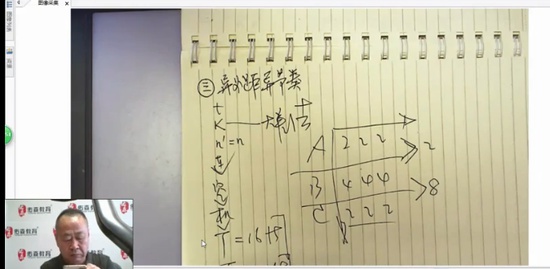 图像采集
㈢ 异步距异节奏
t
K —— 大差法
n'=n
连
窝
T=16+5
A 2 2 2
2
B 4 4 4
8
C 2 2 2
佑森教育